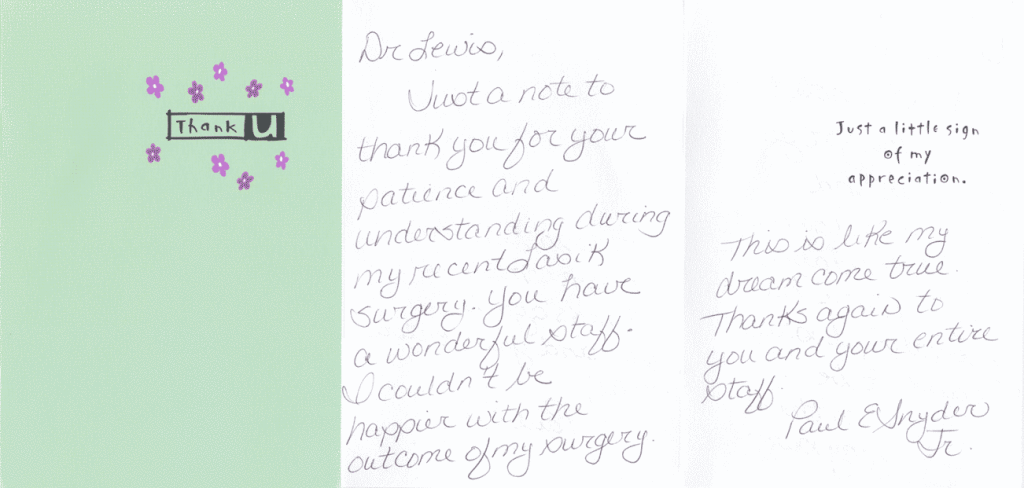 Thank U
Dr Lewis,
Just a note to
thank you for your
patience and
understanding during
my recent Lasik
surgery. You have
a wonderful staff.
I couldn't be
happier with the
outcome of my surgery.
Just a little sign
of my
appreciation.
This is like my
dream come true.
Thanks again to
you and your entire
staff.
Paul E Snyder
Jr.